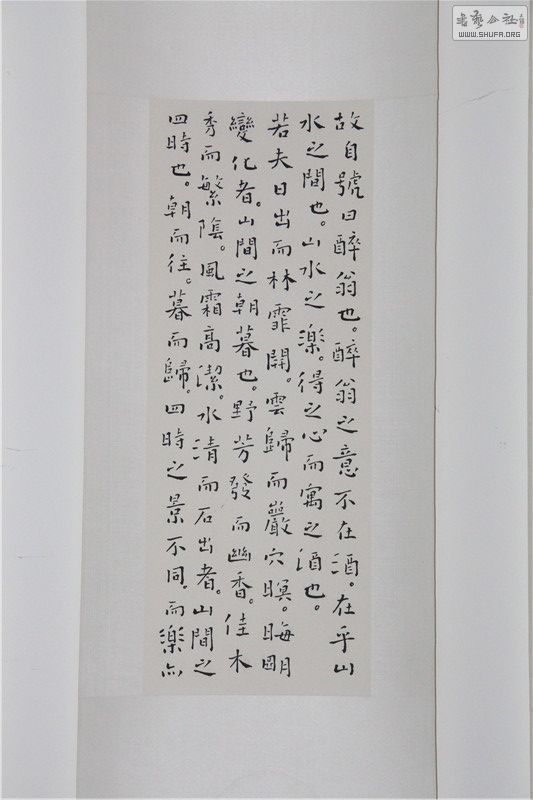 故自號曰醉翁也。醉翁之意不在酒。在乎山
水之間也。山水之樂。得之心而寓之酒也。
若夫日出而林霏開。雲歸而巖穴暝。晦朙
變化者。山間之朝暮也。野芳發而幽香。佳木
秀而繁陰。風霜高潔。水清而石出者。山間之
四時也。朝而往。暮而歸。四時之景不同。而樂亦
書藝公社
WWW.SHUFA.ORG